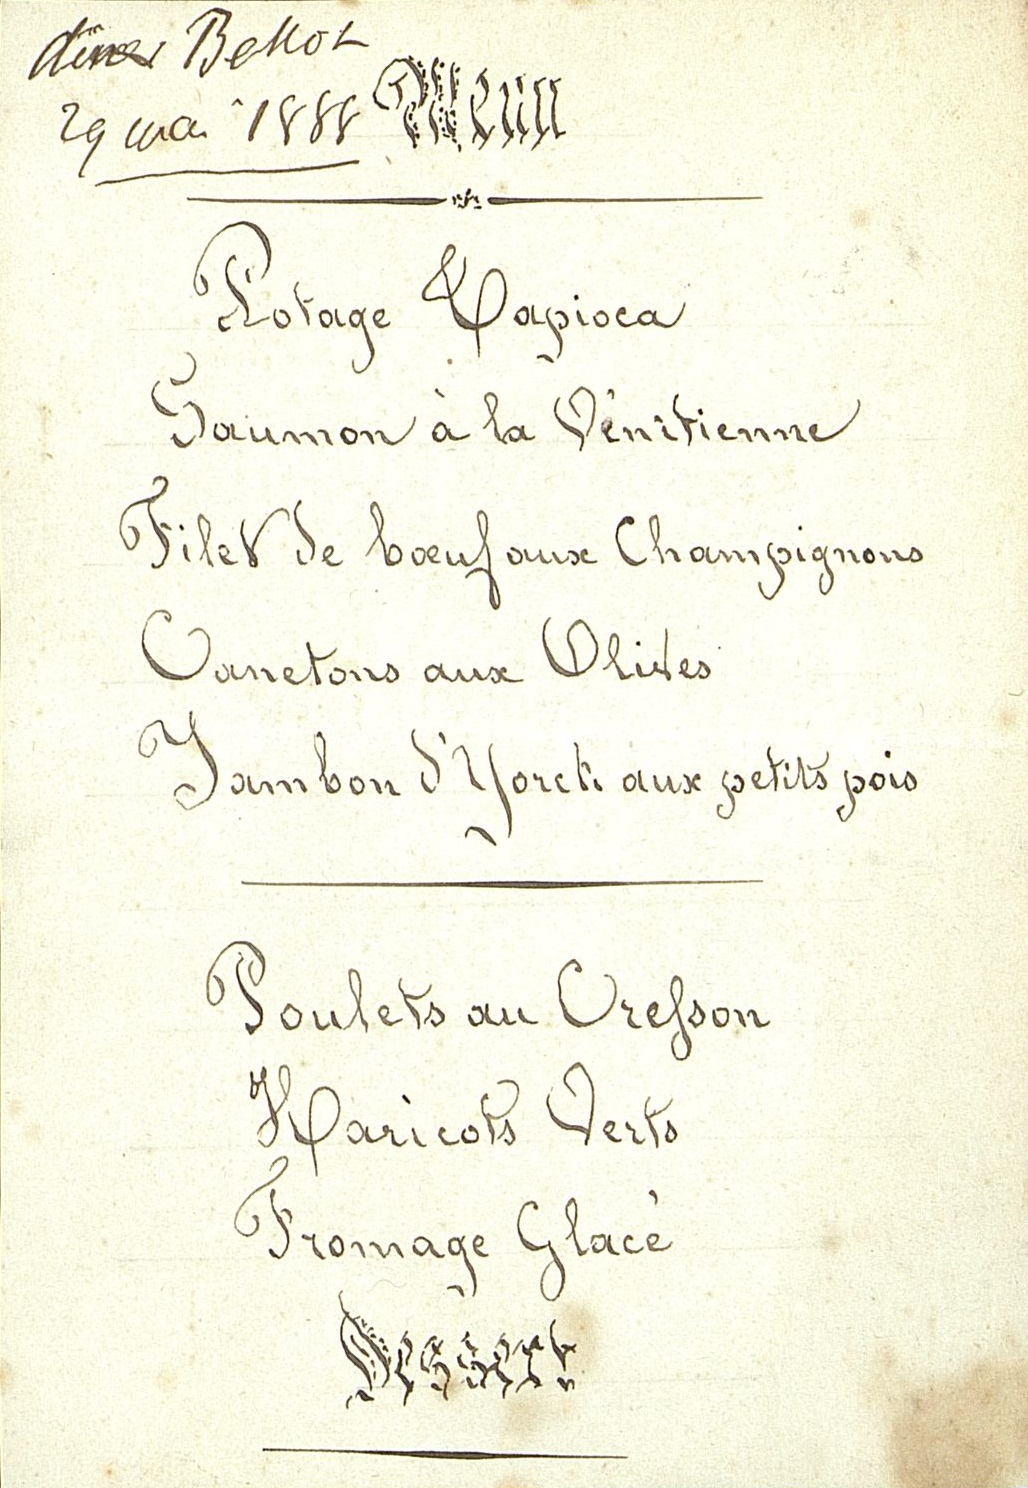 diner Bellot
29 mai 1888
Menu
Potage Tapioca
Saumon à la Vénitienne
Filet de bœuf aux Champignons
Canetons aux Olives
Jambon d'Yorck aux petits pois
Poulets au Cresson
Haricots Verts
Fromage Glacé
Dessert.